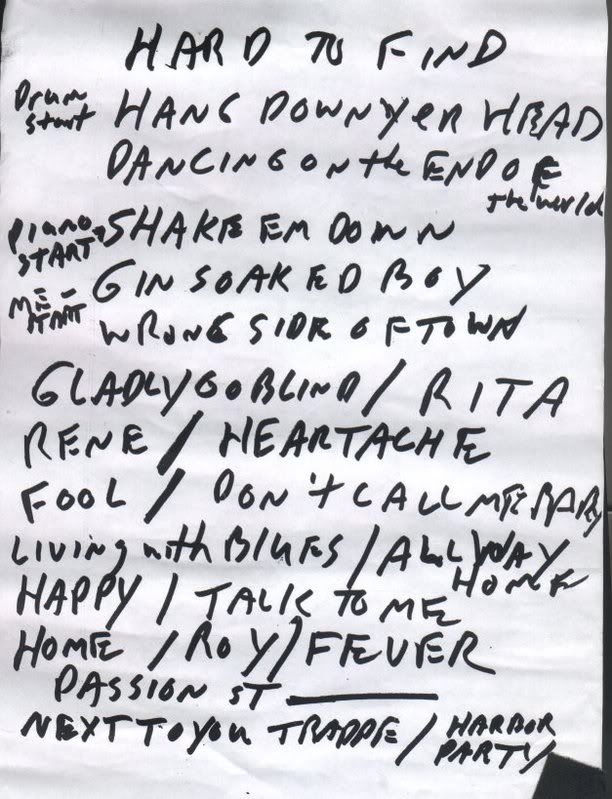 HARD TO FIND
Drum start HANG DOWN YER HEAD
DANCING ON the END OF
the world
PIANO START SHAKE EM DOWN
ME - START GIN SOAKED BOY
WRONG SIDE OF TOWN
GLADLY GO BLIND / RITA
RENE / HEARTACHE
FOOL / DON'T CALL ME BABY
LIVING with BLUES / ALL WAY
HOME
HAPPY / TALK TO ME
HOME / ROY / FEVER
PASSION ST
NEXT TO YOU TRAPPE / HARBOR
PARTY